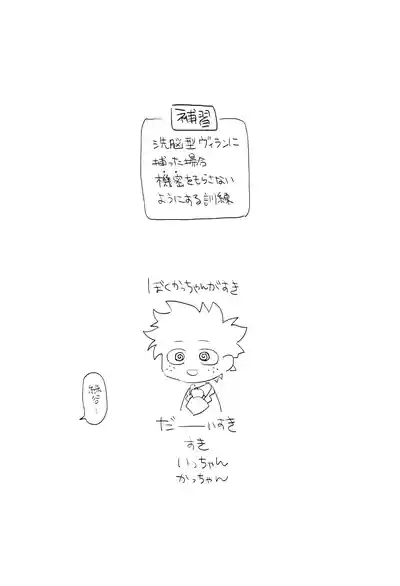 補習
洗脳型ヴィランに
捕った場合
機密をもらさない
ようにある訓練
ぼくかっちゃんがすき
だーいすき
すき
いっちゃん
かっちゃん